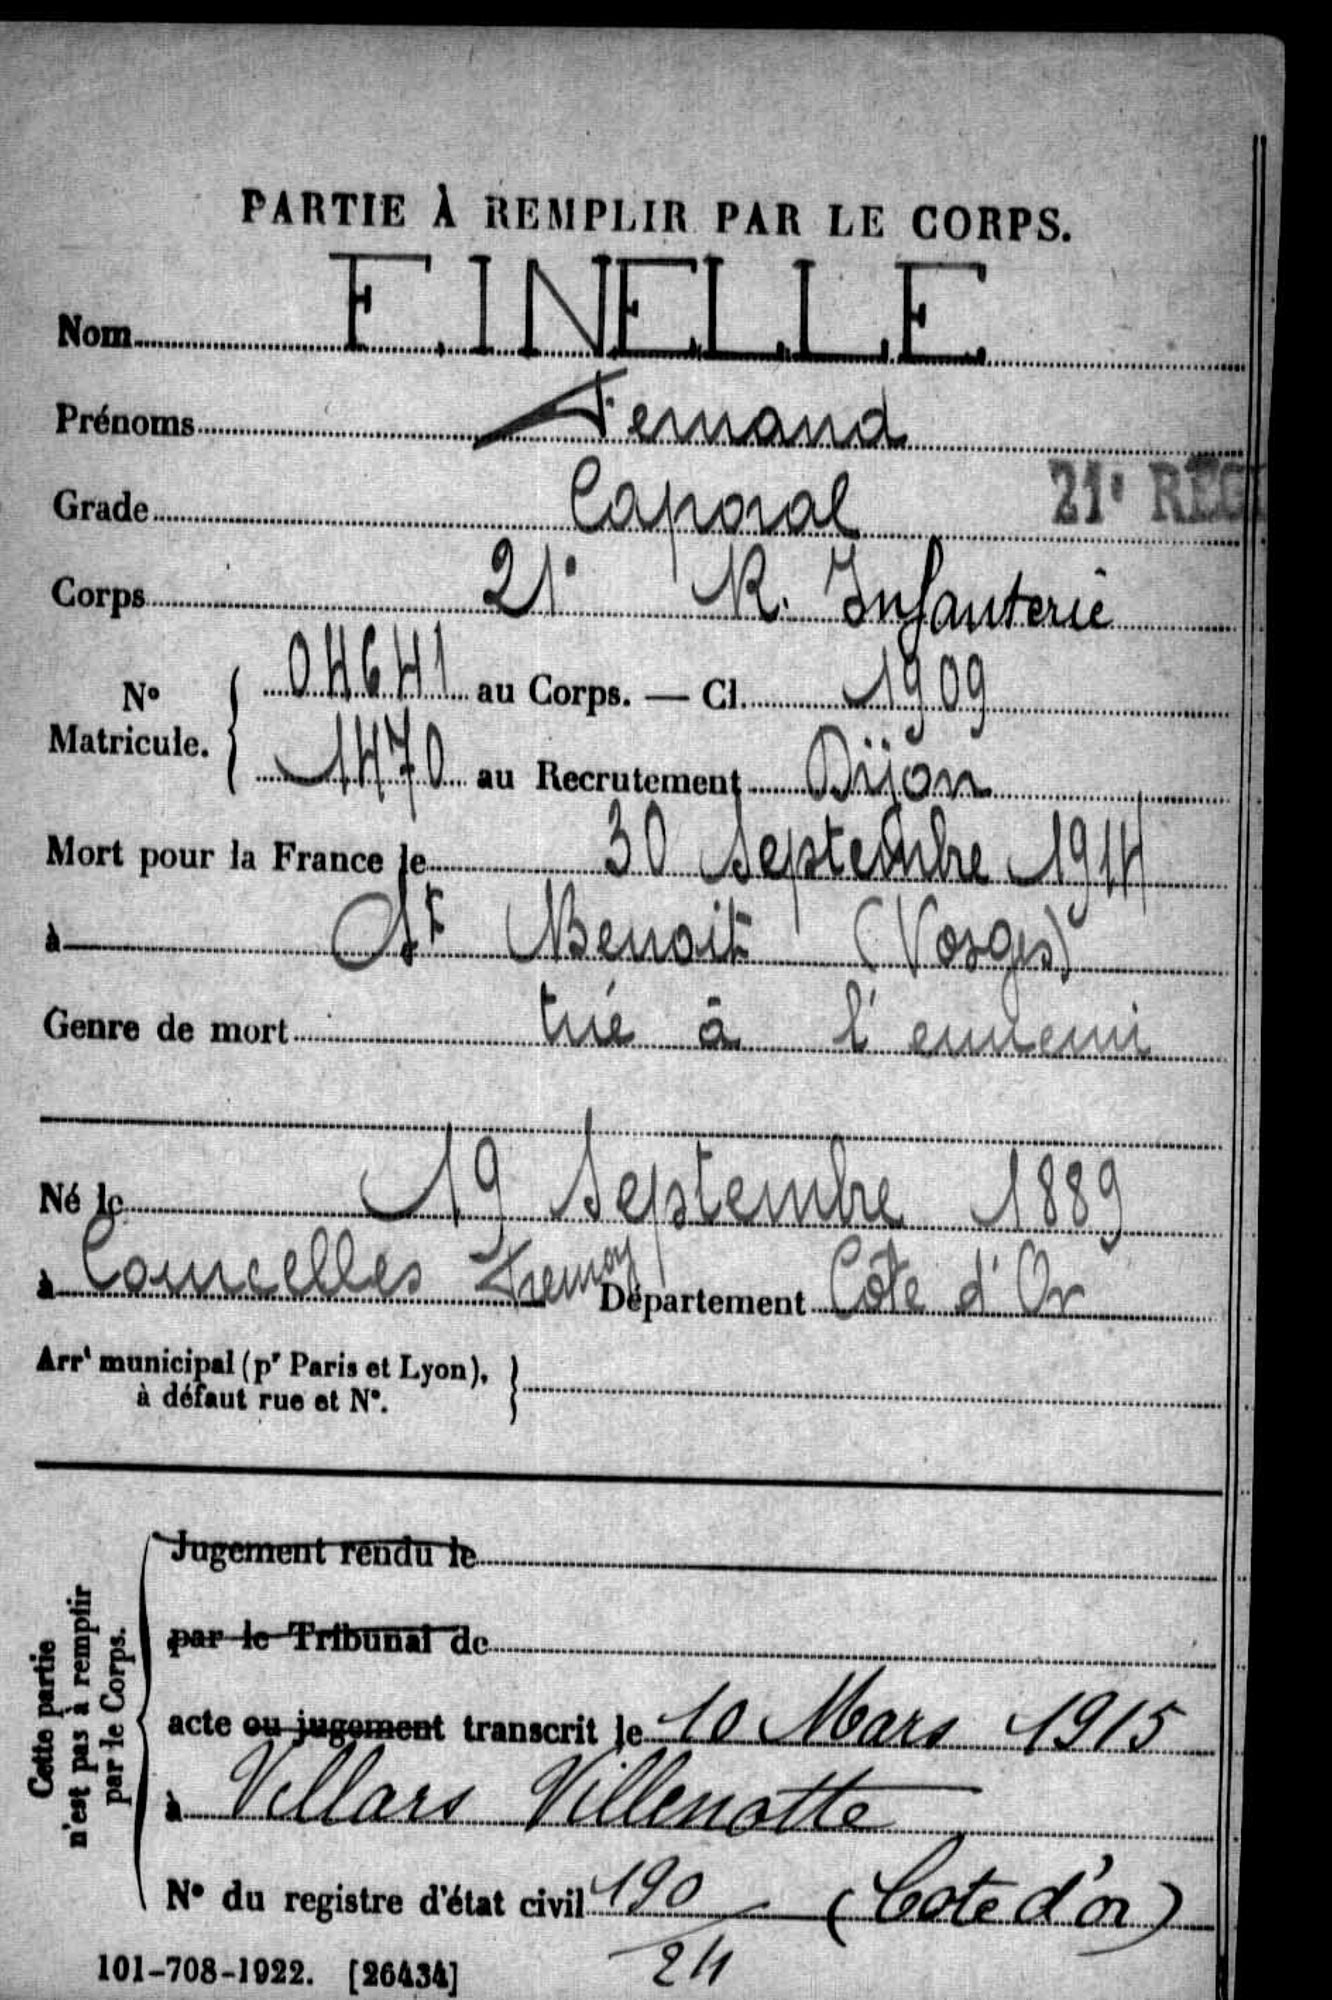 PARTIE À REMPLIR PAR LE CORPS.
Nom FINELLE
Prénoms Fernand
Grade Caporal
21e REGI
Corps 21e R. Infanterie
No Matricule. { 04641 au Corps. — Cl. 1909
1470 au Recrutement Dijon
Mort pour la France le 30 Septembre 1914
à St Benoit (Vosges)
Genre de mort tué à l'ennemi
Né le 19 Septembre 1889
à Courcelles Fremoy Département Côte d'Or
Arrt municipal (pr Paris et Lyon), à défaut rue et No. }
Cette partie n'est pas à remplir par le Corps.
Jugement rendu le
par le Tribunal de
acte ou jugement transcrit le 10 Mars 1915
à Villars Villenotte
No du registre d'état civil 190/24 (Cote d'or)
101-708-1922. [26434]